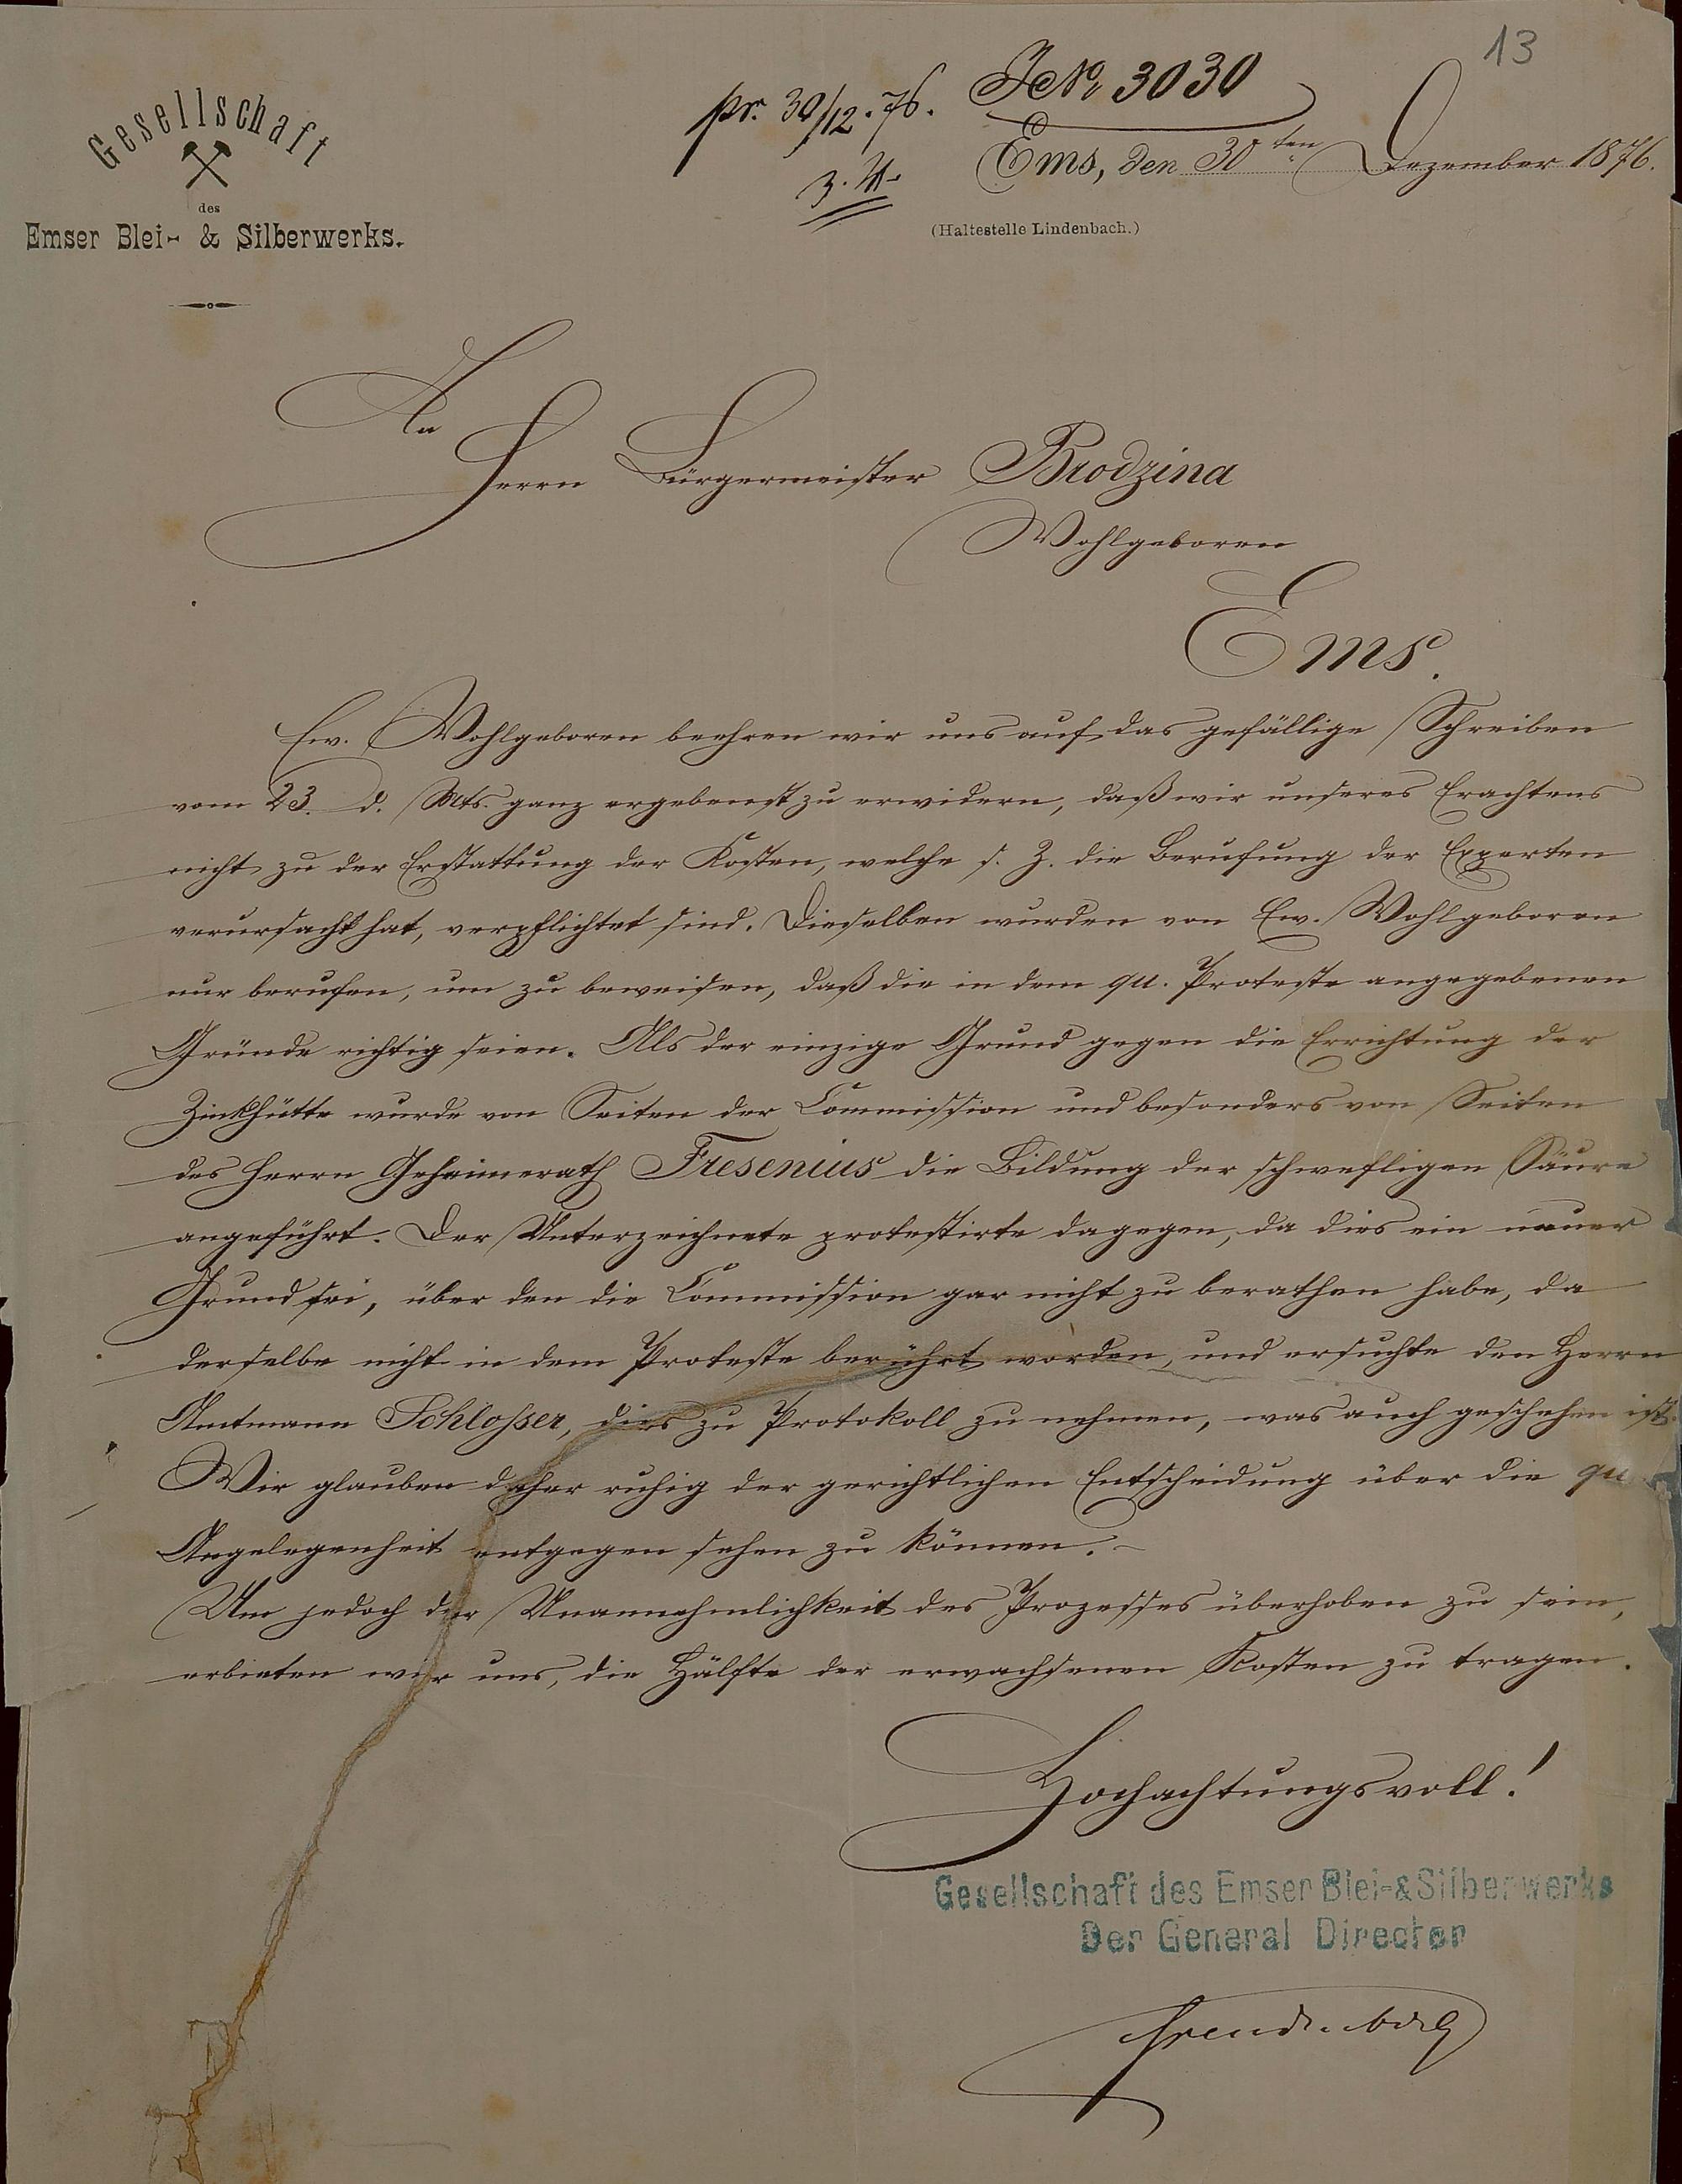 13
Gesellschaft
des
Emser Blei- & Silberwerks.
pr. 30/12.76.
JNo 3030
Ems, den 30ten Dezember 1876.
(Haltestelle Lindenbach.)
An
Herrn Bürgermeister Brodzina
Wohlgeboren
Ems.
Ew. Wohlgeboren beehren wir uns auf das gefällige Schreiben
vom 23. d. Mts. ganz ergebenst zu erwidern, daß wir unseres Erachtens
nicht zu der Erstattung der Kosten, welche s. Z. die Berufung der Experten
verursacht hat, verpflichtet sind. Dieselben wurden von Ew. Wohlgeboren
nur berufen, um zu beweisen, daß die in dem qu. Proteste angegebenen
Gründe richtig seien. Als der einzige Grund gegen die Errichtung der
Zinkhütte wurde von Seiten der Commission und besonders von Seiten
des Herrn Geheimerath Fresenius die Bildung der schwefligen Säure
angeführt. Der Unterzeichnete protestirte dagegen, da dies ein neuer
Grund sei, über den die Commission gar nicht zu berathen habe, da
derselbe nicht in dem Proteste berührt worden, und ersuchte den Herrn
Amtmann Schlosser, dies zu Protokoll zu nehmen, was auch geschehen ist.
Wir glauben daher ruhig der gerichtlichen Entscheidung über die qu.
Angelegenheit entgegen sehen zu können. –
Um jedoch der Unannehmlichkeit des Prozesses überhoben zu sein,
erbieten wir uns, die Hälfte der erwachsenen Kosten zu tragen.
Hochachtungsvoll!
Gesellschaft des Emser Blei-& Silberwerks
Der General Director
Freudenberg